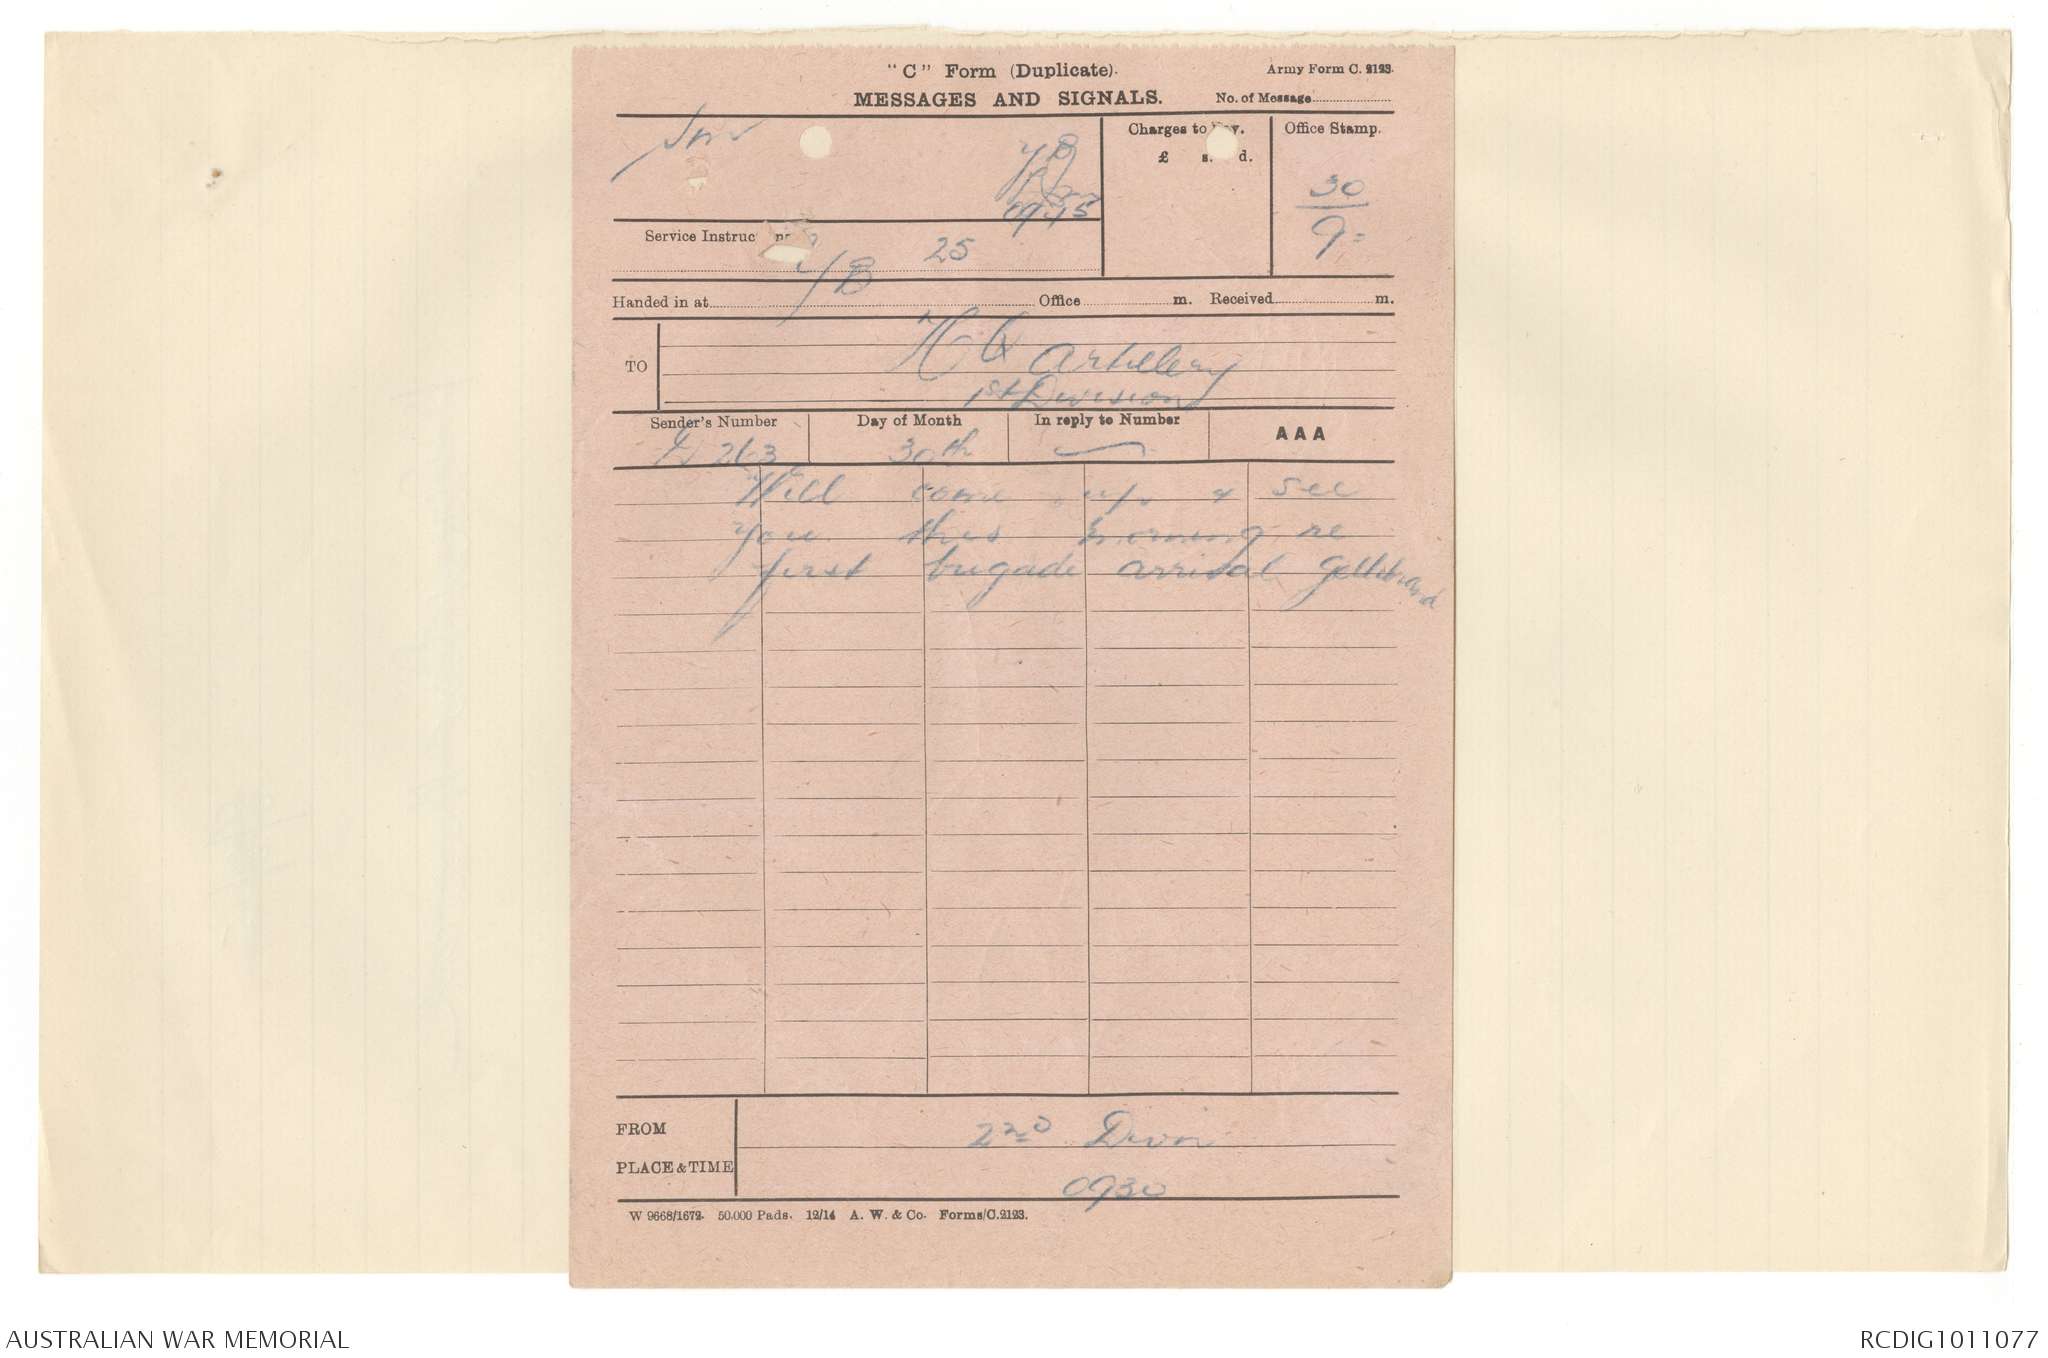 "C" Form (Duplicate). Army Form C. 2123.
MESSAGES AND SIGNALS. No. of Message
Charges to Pay. Office Stamp.
£ s. d.
YB
0945
30
9
Service Instruc
YB 25
Handed in at Office m. Received m.
TO
HQ Artillery
1st Division
Sender's Number Day of Month In reply to Number AAA
G 263 30th
Will come up & see
you this morning re
first brigade arrival Gellibrand
FROM 2ND Divn
PLACE & TIME
0930
W 9668/1672. 50,000 Pads. 12/14 A. W. & Co. Forms/C.2123.
AUSTRALIAN WAR MEMORIAL RCDIG1011077